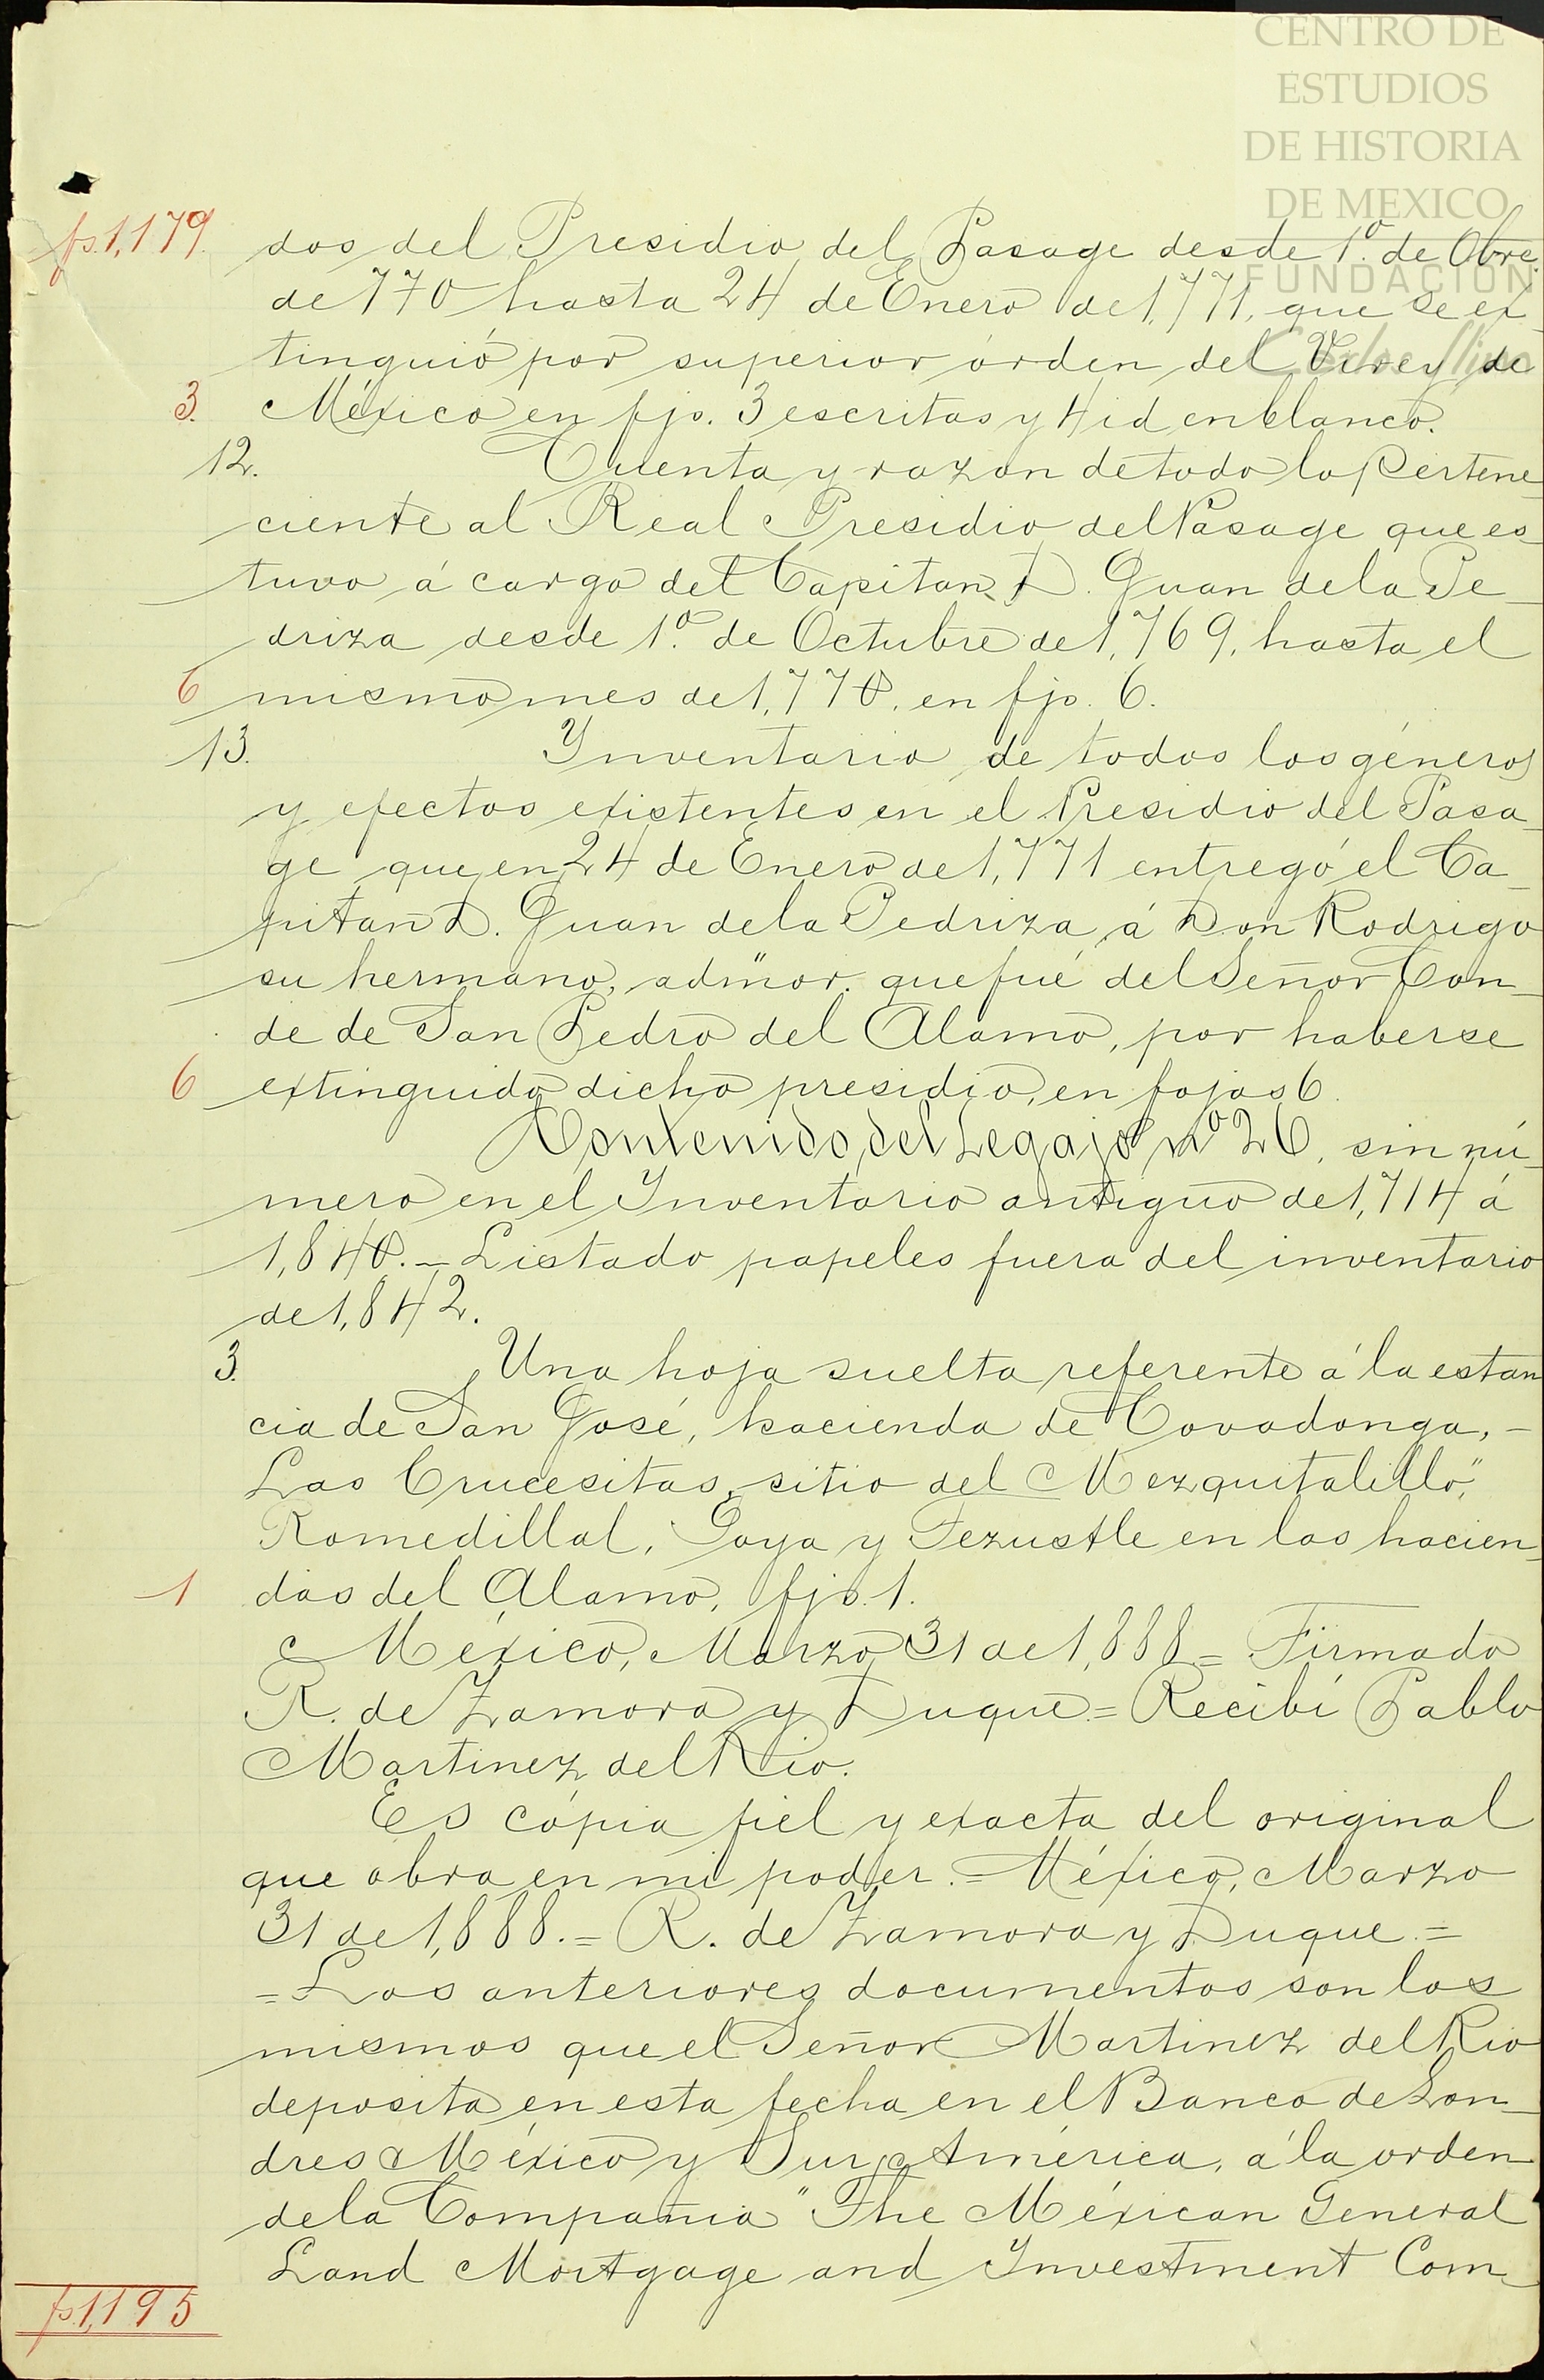 CENTRO DE
ESTUDIOS
DE HISTORIA
DE MEXICO
FUNDACIÓN
Carlos Slim
fs. 1,179. dos del Presidio del Pasage desde 1º. de Obre.
de 770 hasta 24 de Enero de 1,771, que se ex-
tinguió por superior órden del Virey de
3. México en fjs. 3 escritas y 4 id en blanco.
12. Cuenta y razon de todo lo Pertene-
ciente al Real Presidio del Pasage que es-
tuvo á cargo del Capitan D. Juan de la Pe-
driza desde 1º. de Octubre de 1,769, hasta el
6 mismo mes de 1,770, en fjs. 6.
13. Inventario de todos los géneros
y efectos existentes en el Presidio del Pasa-
ge que en 24 de Enero de 1,771 entregó el Ca-
pitan D. Juan de la Pedriza á Don Rodrigo
su hermano, admor. que fué del Señor Con-
de de San Pedro del Alamo, por haberse
6 extinguido dicho presidio, en fojas 6.
Contenido del Legajo nº 26, sin nú-
mero en el Inventario antiguo de 1,714 á
1,840. – Listado papeles fuera del inventario
de 1,842.
3. Una hoja suelta referente á la estan
cia de San José, hacienda de Covadonga, –
Las Crucesitas, sitio del Mezquitalillo",
Romedillal, Goya y Tezustle en las hacien-
1 das del Alamo, fjs. 1.
México, Marzo 31 de 1,888 = Firmado
R. de Zamora y Duque. = Recibí Pablo
Martinez del Rio.
Es cópia fiel y exacta del original
que obra en mi poder. = México, Marzo
31 de 1,888. = R. de Zamora y Duque. =
= Los anteriores documentos son los
mismos que el Señor Martinez del Rio
deposita en esta fecha en el Banco de Lon-
dres México y Sur América, á la orden
de la Compañia "The Méxican General
Land Mortgage and Investment Com-
fs. 1,195